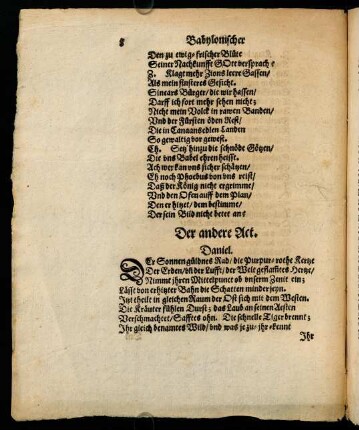 8
Babylonischer
Den zu ewig-frischer Blüte
Seiner Nachkunfft GOtt versprach?
Z. Klagt mehr Zions leere Gassen/
Als mein finsteres Gesicht.
Sinears Bürger/ die wir hassen/
Darff ich fort mehr sehen nicht;
Nicht mein Volck in rawen Banden/
Vnd der Fürsten öden Rest/
Die in Canaans edlen Landen
So gewaltig vor gewest.
Ch. Setz hinzu die schnöde Götzen/
Die vns Babel ehren heisst.
Ach wer kan vns sicher schätzen/
Eh noch Phoebus von vns reist/
Daß der König nicht ergrimme/
Vnd den Ofen auff dem Plan/
Den er hitzet/ dem bestimme/
Der sein Bild nicht betet an?
Der andere Act.
Daniel.
DEr Sonnen güldnes Rad/ die Purpur-rothe Kertze
Der Erden/ der Lufft/ der Welt gestafftes Hertze/
Nimmt jhren Mittelpunct ob vnserm Zenit ein;
Lässt von erhitzter Bahn die Schatten minder seyn.
Jtzt theilt in gleichen Raum der Ost sich mit dem Westen.
Die Kräuter fühlen Durst; das Laub an seinen Aesten
Verschmachtet/ Safftes ohn. Die schnelle Tiger brennt;
Jhr gleich benamtes Wild/ vnd was je zu jhr
Jhr